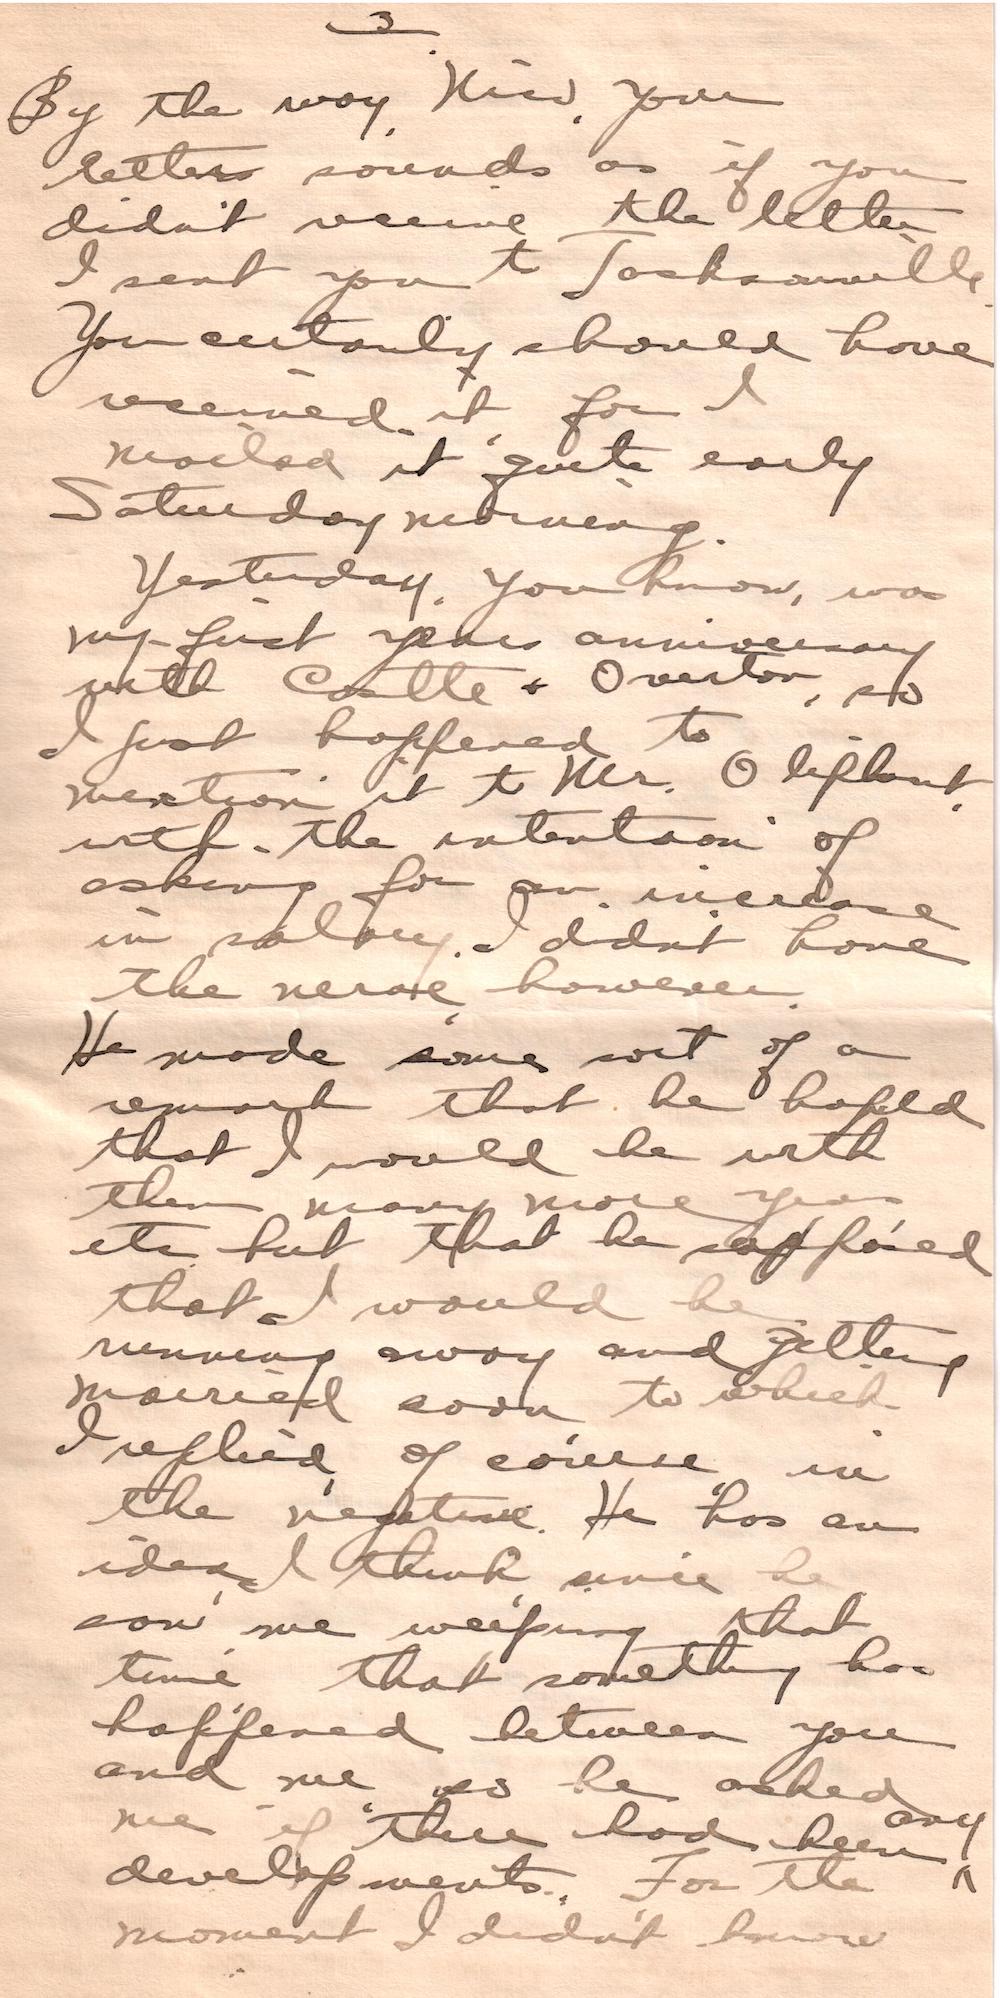 3
By the way, Nico, your
letters sounds as if you
didn't receive the letter
I sent you to Jacksonville.
You certainly should have
received it, for I
mailed it quite early
Saturday morning.
Yesterday, you know, was
my first years anniversary
with Castle & Overton, so
I just happened to
mention it to Mr. Oliphant,
with the intention of
asking for an increase
in salary. I didn't have
the nerve, however.
He made some sort of a
remark that he hoped
that I would be with
them many more years
etc but that he supposed
that I would be
running away and getting
married soon to which
I replied, of course, in
the negative. He has an
idea, I think, since he
saw me weeping that
time that something has
happened between you
and me, so he asked
me if there had been any
developments. For the
moment I didn't know